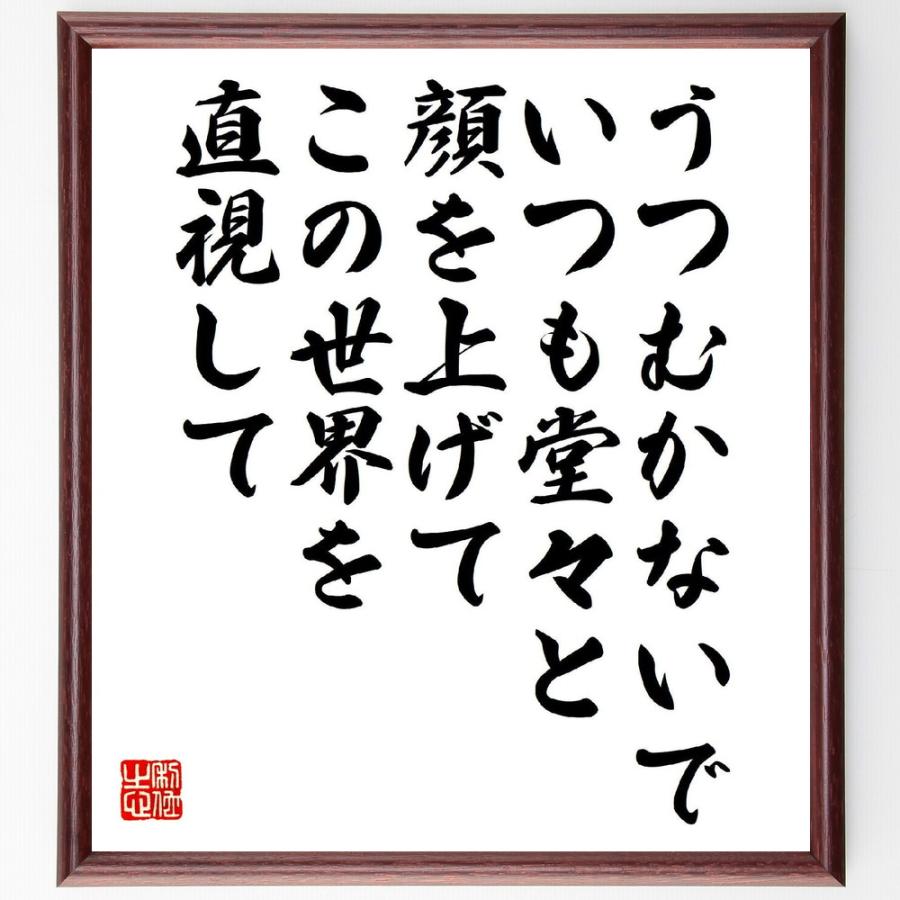 うつむかないで
いつも堂々と
顔を上げて
この世界を
直視して